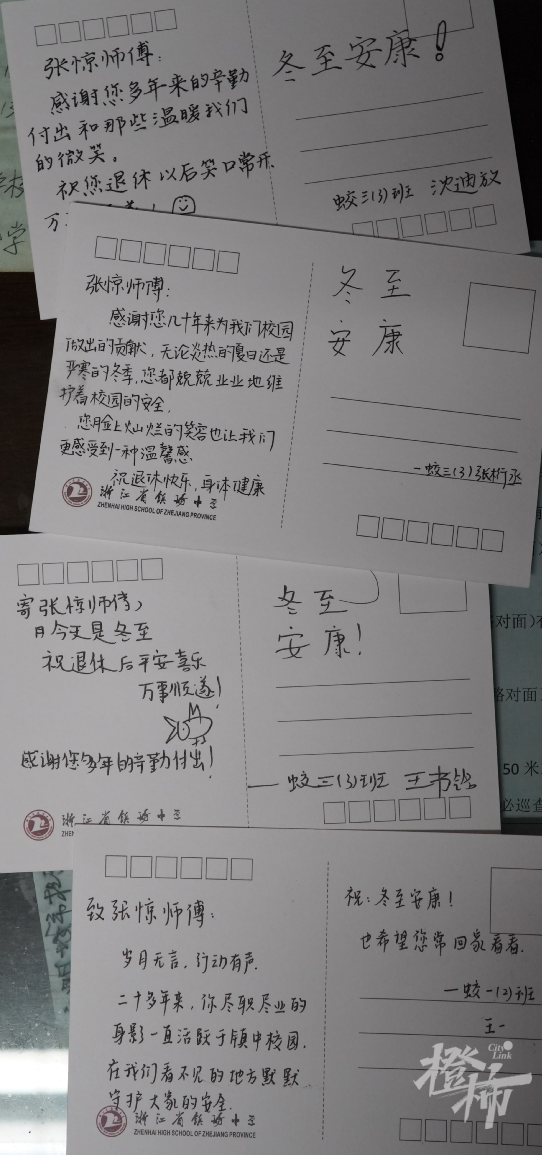 张惊师傅：
感谢您多年来的辛勤
付出和那些温暖我们
的微笑。
祝您退休以后笑口常开
万
冬至安康！
蛟三(3)班 沈迪放
学
张惊师傅：
感谢您几十年来为我们校园
做出的贡献，无论炎热的夏日还是
严寒的冬季，您都兢兢业业地维
护着校园的安全，
您脸上灿烂的笑容也让我们
更感受到一种温馨感
祝退休快乐，身体健康
浙江省镇海中学
ZHENHAI HIGH SCHOOL OF ZHEJIANG PROVINCE
冬至
安康
一蛟三(3)张析丞
寄张惊师傅，
今天是冬至
祝退休后平安喜乐
万事顺遂！
感谢您多年的辛勤付出！
浙江省镇海中学
ZHEN
冬至
安康！
——蛟三(3)班 王书铭
对面)
路对面
50 米
必巡查
致张惊师傅：
岁月无言，行动有声.
二十多年来，你尽职尽业的
身影一直活跃于镇中校园.
在我们看不见的地方默默
守护大家的安全.
浙江省镇海中学
ZHENHAI HIGH SCHOOL OF ZHEJIANG PROVINCE
祝：冬至安康！
也希望您常回家看看.
一蛟一(2)班
王一
City Link
橙柿